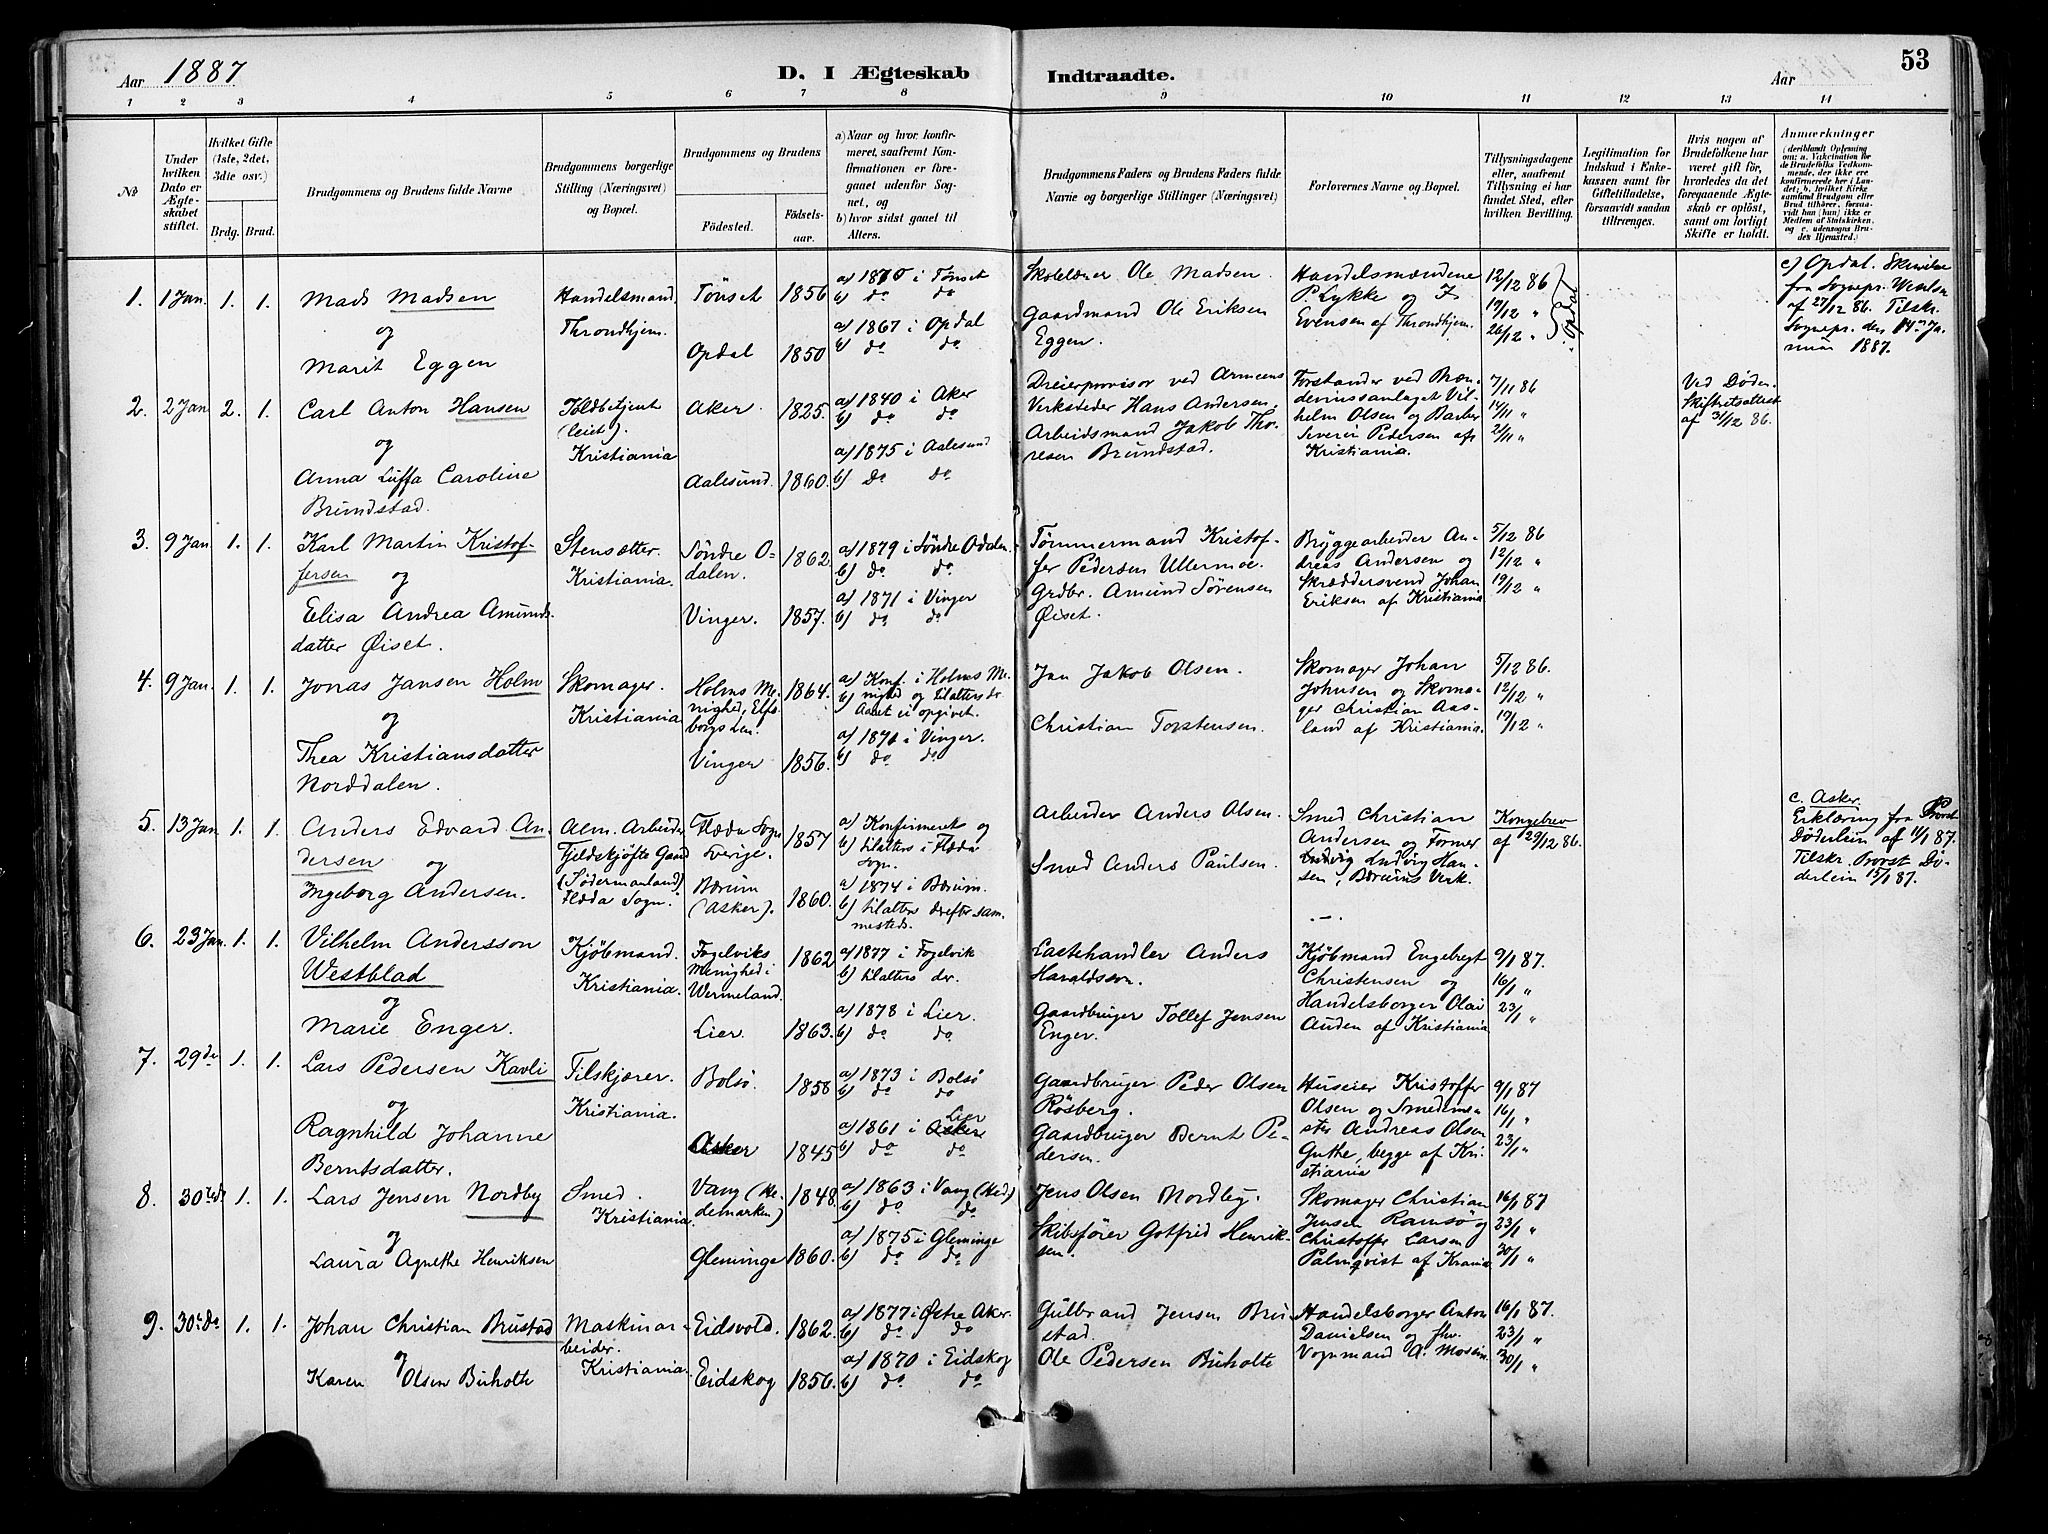 53
Aar 1887 D. I Ægteskab Indtraadte. Aar
1 2 3 4 5 6 7 8 9 10 11 12 13 14
No
Under hvilken Dato er Ægteskabet stiftet.
Hvilket Gifte (1ste, 2det, 3die osv.)
Brdg. Brud.
Brudgommens og Brudens fulde Navne
Brudgommens borgerlige Stilling (Næringsvei) og Bopæl.
Brudgommens og Brudens
Fødested.
Fødselsaar.
a) Naar og hvor konfirmeret, saafremt Konfirmationen er foregaaet udenfor Sognet, og
b) hvor sidst gaaet til Alters.
Brudgommens Faders og Brudens Faders fulde Navne og borgerlige Stillinger (Næringsvei)
Forlovernes Navne og Bopæl.
Tillysningsdagene eller, saafremt Tillysning ei har fundet Sted, efter hvilken Bevilling.
Legitimation for Indskud i Enkekassen samt for Giftetilladelse, forsaavidt saadan tiltrænges.
Hvis nogen af Brudefolkene har været gift før, hvorledes da det foregaaende Ægteskab er opløst, samt om lovligt Skifte er holdt.
Anmærkninger (deriblandt Oplysning om: a. Vakcination for de Brudefolks Vedkommende, der ikke ere konfirmerede her i Landet; b. hvilket Kirkesamfund Brudgom eller Brud tilhører, forsaavidt han (hun) ikke er Medlem af Statskirken, og c. udensogns Brudes Hjemsted.)
1. 1 Jan. 1. 1.
Mads Madsen
og
Marit Eggen
Handelsmand.
Throndhjem.
Tönset 1856
Opdal 1850
a) 1870 i Tönset
b) do do
a) 1867 i Opdal
b) do do
Skolelærer Ole Madsen.
Gaardmand Ole Eriksen
Eggen.
Handelsmændene
P. Lykke og J.
Evensen af Throndhjem.
12/12 86
19/12 "
26/12 "
Opdal
c) Opdal. Skrivelse
fra Sognepr.
af 27/12 86. Tilskr.
Sognepr. den 14 Ja-
nuar 1887.
2. 2 Jan 2. 1.
Carl Anton Hansen
og
Anna Luffa Caroline
Brundstad.
Toldbetjent
(leiet).
Kristiania
Aker. 1825.
Aalesund. 1860.
a) 1840 i Aker
b) do do
a) 1875 i Aalesund
b) do do
Dreierprovisor ved Armeens
Verksteder Hans Andersen.
Arbeidsmand Jakob Tho-
resen Brundstad.
Forstander ved Bræn-
devinsanlaget Vil-
helm Olsen og Barber
Severin Pedersen af
Kristiania.
7/11 86
14/11 "
21/11 "
Ved Døden.
Skifteretsattest
af 31/12 86.
3. 9 Jan. 1. 1.
Karl Martin Kristof-
fersen og
Elisa Andrea Amunds-
datter Øiset.
Stensætter.
Kristiania.
Söndre O-
dalen. 1862
Vinger. 1857.
a) 1879 i Söndre Odalen.
b) do do
a) 1871 i Vinger
b) do do
Tømmermand Kristof-
fer Pedersen Ullermoe.
Grdbr. Amund Sørensen
Øiset.
Bryggearbeider An-
dreas Andersen og
Skræddersvend Johan
Eriksen af Kristiania
5/12 86
12/12 "
19/12 "
4. 9 Jan. 1. 1.
Jonas Jansen Holm
og
Thea Kristiansdatter
Norddalen.
Skomager.
Kristiania
Holms Me-
nighed, Elfs-
borgs Len. 1864.
Vinger 1856.
a) Konf. i Holms Me-
b) nighed og tilalters do.
Aaret ei opgivet.
a) 1871 i Vinger.
b) do do
Jan Jakob Olsen.
Christian Torstensen.
Skomager Johan
Johnsen og Skoma-
ger Christian Aas-
land af Kristiania.
5/12 86.
12/12 "
19/12 "
5. 13 Jan. 1. 1.
Anders Edvard An-
dersen og
Ingeborg Andersen.
Alm. Arbeider
Fjeldskjöfte Gaard
(Södermanland)
Flöda Sogn.
Flöda Sogn
Sverige. 1857
Bærum
(Asker). 1860.
a) Konfirmeret og
b) tilalters i Flöda
Sogn.
a) 1874 i Bærum.
b) tilalters derefter sam-
mesteds.
Arbeider Anders Olsen.
Smed Anders Paulsen.
Smed Christian
Andersen og Former
Ludvig Ludvig Han-
sen, Bærums Verk.
Kongebrev
af 29/12 86.
c. Asker.
Erklæring fra Provst
Döderlein af 11/1 87.
Tilskr. Provst Dö-
derlein 15/1 87.
6. 23 Jan. 1. 1.
Vilhelm Andersson
Westblad
og
Marie Enger.
Kjøbmand.
Kristiania.
Fogelviks
Menighed i
Wermeland. 1862
Lier. 1863.
a) 1877 i Fogelvik
b) tilalters do.
a) 1878 i Lier.
b) do do
Lastehandler Anders
Haraldsson.
Gaardbruger Tollef Jensen
Enger.
Kjøbmand Engebregt
Christensen og
Handelsborger Olai
Auden af Kristiania
9/1 87.
16/1 "
23/1 "
7. 29 do 1. 1.
Lars Pedersen Kavli
og
Ragnhild Johanne
Berntsdatter.
Tilskjærer.
Kristiania.
Bolsø. 1858
Asker 1845
a) 1873 i Bolsø
b) do do
a) 1861 i Asker Lier
b) do do
Gaardbruger Peder Olsen
Rösberg.
Gaardbruger Bernt Pe-
dersen.
Huseier Kristoffer
Olsen og Smedeme-
ster Andreas Olsen
Guthe, begge af Kri-
stiania
9/1 87
16/1 "
23/1 "
8. 30te do 1. 1.
Lars Jensen Nordby
og
Laura Agnethe Henriksen
Smed.
Kristiania.
Vang (He-
demarken) 1848.
Gleminge 1860.
a) 1863 i Vang (Hed)
b) do do
a) 1875 i Gleminge
b) do do
Jens Olsen Nordby.
Skibsfører Gotfrid Henrik-
sen.
Skomager Christian
Jensen Ramsö og
Christoffer Larsen
Palmqvist af Krania
16/1 87
23/1 "
30/1 "
9. 30te do 1. 1.
Johan Christian Brustad
og
Karen Olsen Buholte
Maskinar-
beider.
Kristiania.
Eidsvold. 1862.
Eidskog 1856.
a) 1877 i Østre Aker.
b) do do
a) 1870 i Eidskog
b) do do
Gulbrand Jensen Bru-
stad.
Ole Pedersen Buholte
Handelsborger Anton
Danielsen og fhv.
Vognmand A. Moseim.
16/1 87.
23/1 "
30/1 "